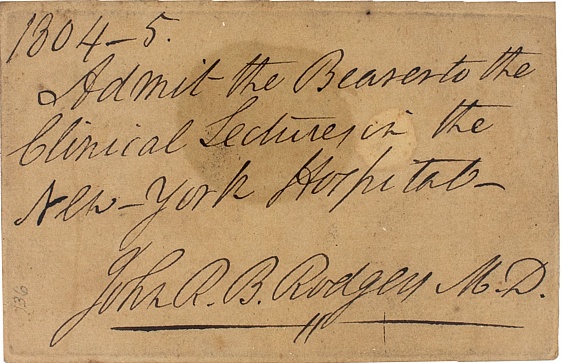 1804-5.
Admit the Bearer to the
Clinical Lectures in the
New-York Hospital-
John R. B. Rodgers M.D.
736